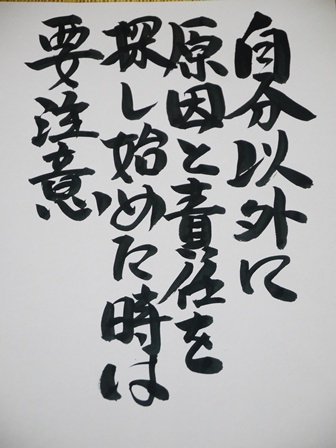 自分以外に
原因と責任を
探し始めた時は
要注意